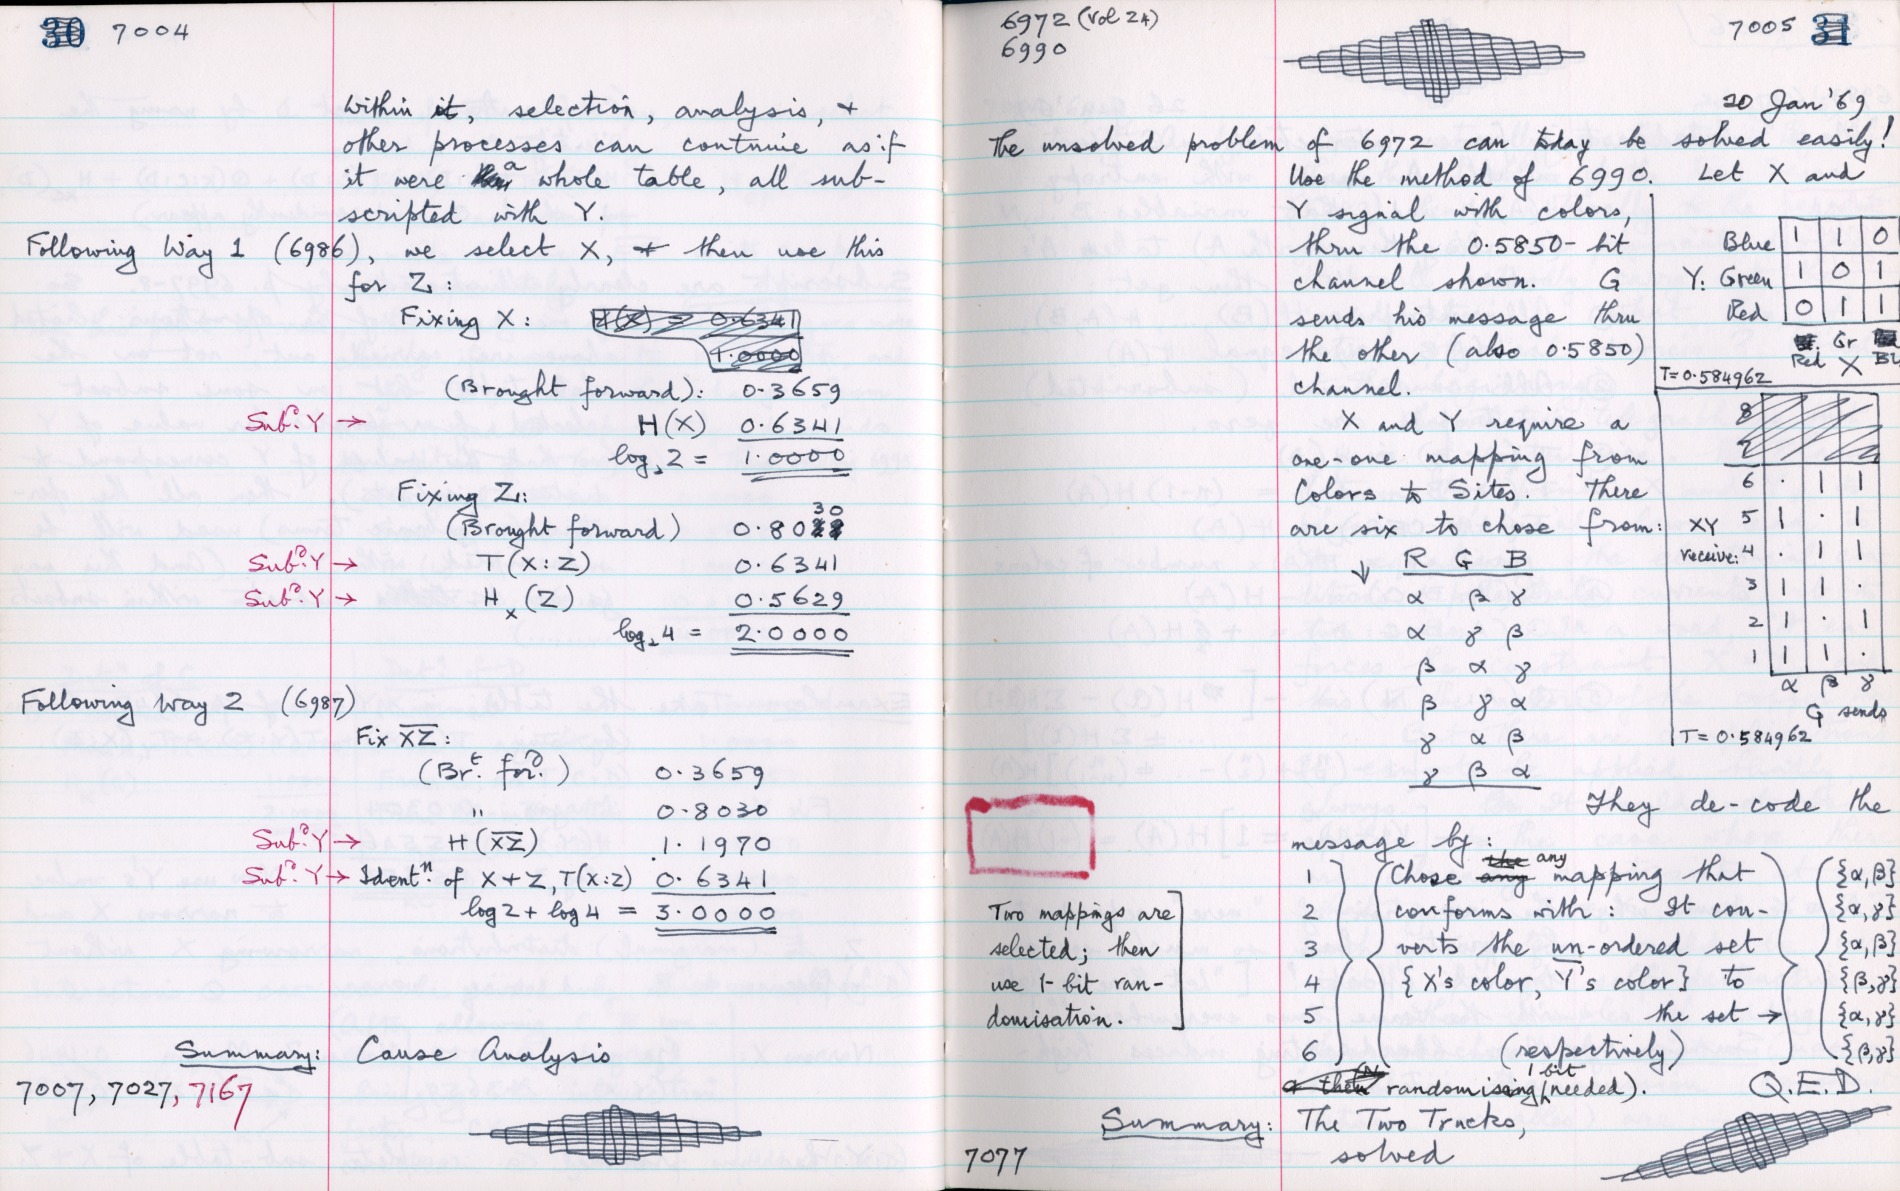 30 7004
within it, selection, analysis, +
other processes can continue as if
it were a whole table, all sub-
scripted with Y.
Following Way 1 (6986), we select X, + then use this
for Z:
Fixing X: H(X) = 0.6341
1.0000
(Brought forward): 0.3659
Subd. Y → H(X) 0.6341
log₂ 2 = 1.0000
Fixing Z:
(Brought forward) 0.8030
Subd. Y → T(X:Z) 0.6341
Subd. Y → Hₓ(Z) 0.5629
log₂ 4 = 2.0000
Following Way 2 (6987)
Fix X̅Z̅:
(Brt. ford.) 0.3659
" 0.8030
Subd. Y → H(X̅Z̅) 1.1970
Subd. Y → Identn. of X+Z, T(X:Z) 0.6341
log 2 + log 4 = 3.0000
Summary: Cause Analysis
7007, 7027, 7167
6972 (Vol 24)
6990
7005 31
20 Jan '69
The unsolved problem of 6972 can today be solved easily!
Use the method of 6990. Let X and
Y signal with colors,
thru the 0.5850-bit
channel shown. G
sends his message thru
the other (also 0.5850)
channel.
X and Y require a
one-one mapping from
Colors to Sites. There
are six to chose from:
R G B
↓ α β γ
α γ β
β α γ
β γ α
γ α β
γ β α
Blue 1 1 0
Y: Green 1 0 1
Red 0 1 1
Red Gr Bl
X
T = 0.584962
8
7
6 · 1 1
XY 5 1 · 1
receive: 4 · 1 1
3 1 1 ·
2 1 · 1
1 1 1 ·
α β γ
G sends
T = 0.584962
They de-code the
message by:
1 Chose the any any mapping that {α,β}
2 conforms with: It con- {α,γ}
3 verts the un-ordered set {α,β}
4 {X's color, Y's color} to {β,γ}
5 the set → {α,γ}
6 (respectively) {β,γ}
then randomising (1 bit needded). Q.E.D.
Two mappings are
selected; then
use 1-bit ran-
domisation.
Summary: The Two Trucks,
solved
7077